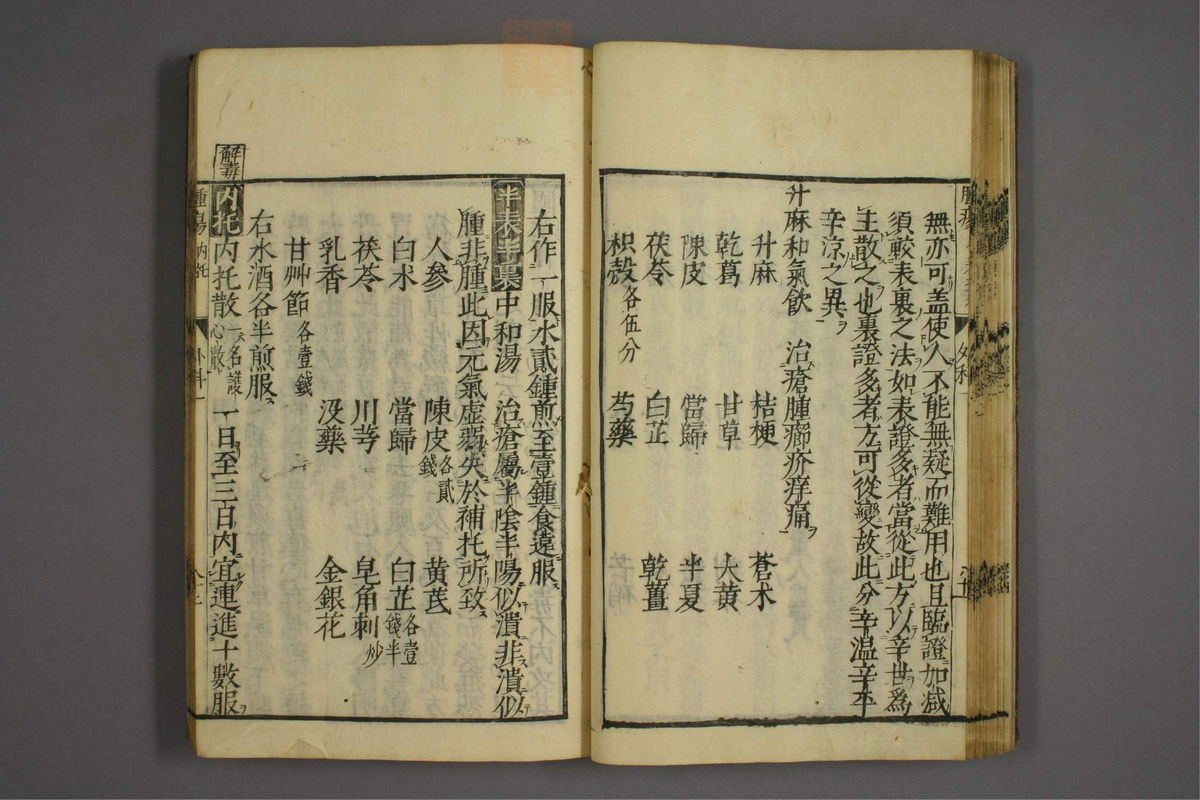 無亦可盖使人不能無疑而難用也且臨證加减
須較表裏之法如表證多者當從此方以辛世爲
主散之也裏證多者方可從變故此分辛温辛平
辛涼之異
升麻和氣飲 治瘡腫癤疥痒痛
升麻 桔梗 蒼术
乾葛 甘草 大黄
陳皮 當歸 半夏
茯苓 白芷 乾薑
枳殼各伍分 芍藥
右作一服水貳鍾煎至壹鍾食遠服
半表半裏 中和湯 治瘡屬半陰半陽似潰非潰似
腫非腫此因元氣虚弱失於補托所致
人參 陳皮各貳錢 黄芪
白术 當歸 白芷各壹錢半
茯苓 川芎 皂角刺炒
乳香 没藥 金銀花
甘艸節各壹錢
右水酒各半煎服
解毒
内托 内托散一名護心散 一日至三日内宜連進十數服
腫瘍 内托
外科